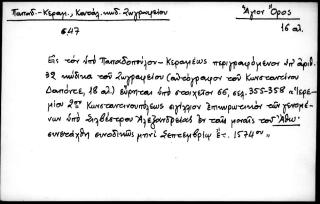 Παπαδ.-Κεραμ., Κατάλ. κωδ. Ζωγραφείου
Ἅγιον Ὄρος
647
16 αἰ.
Εἰς τὸν ὑπὸ Παπαδοπούλου-Κεραμέως περιγραφόμενον ὑπ' ἀριθ.
32 κώδικα τοῦ Ζωγραφείου (αὐτόγραφον τοῦ Κωνσταντίνου
Δαπόντε, 18 αἰ.) εὕρηται ὑπὸ στοιχεῖον 66, σελ. 355-358 "Ἱερε-
μίου 2ου Κωνσταντινουπόλεως σιγίλλιον ἐπικυρωτικὸν τῶν γενομέ-
νων ὑπὸ Σιλβέστρου Ἀλεξανδρείας ἐν ταῖς μοναῖς τοῦ Ἄθω.
συνετάχθη συνοδικῶς μηνὶ Σεπτεμβρίῳ ἔτ. 1574ου"